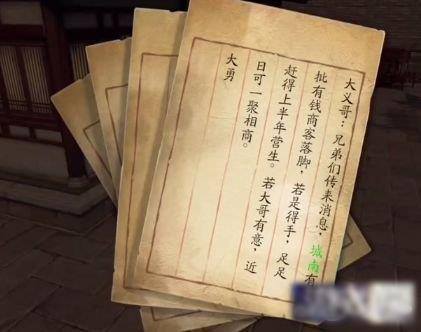 大义哥：兄弟们传来消息，城南有
批有钱商客落脚，若是得手，足足
赶得上半年营生。若大哥有意，近
日可一聚相商。
大勇